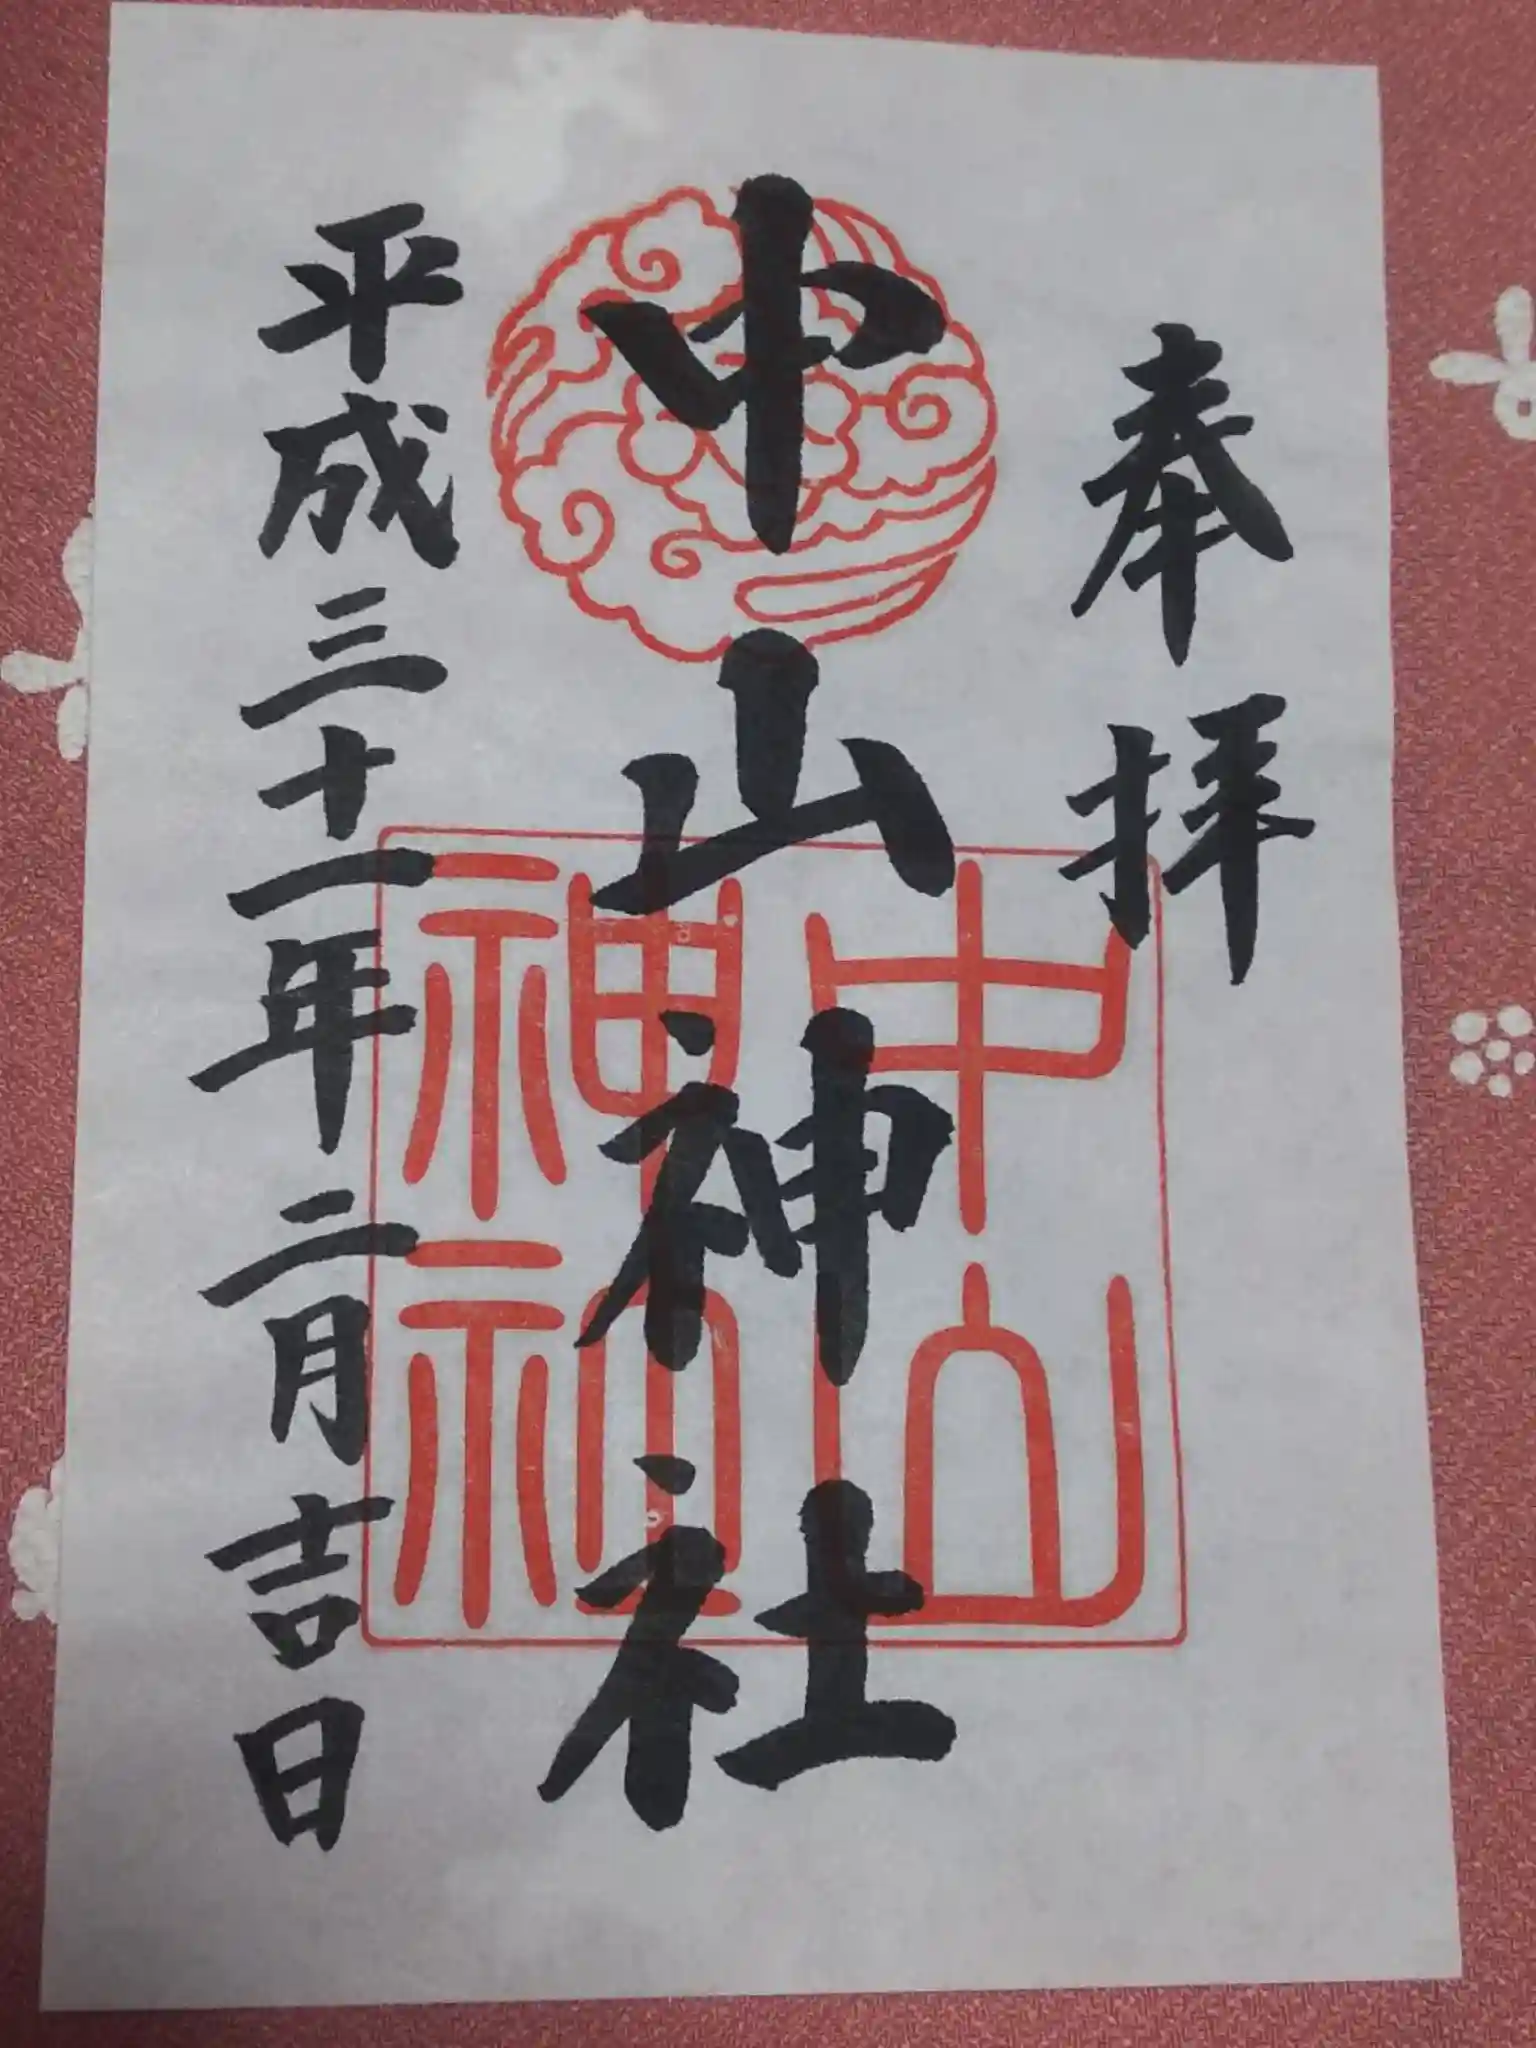 奉拝
中山神社
中山
神社
平成三十一年二月吉日